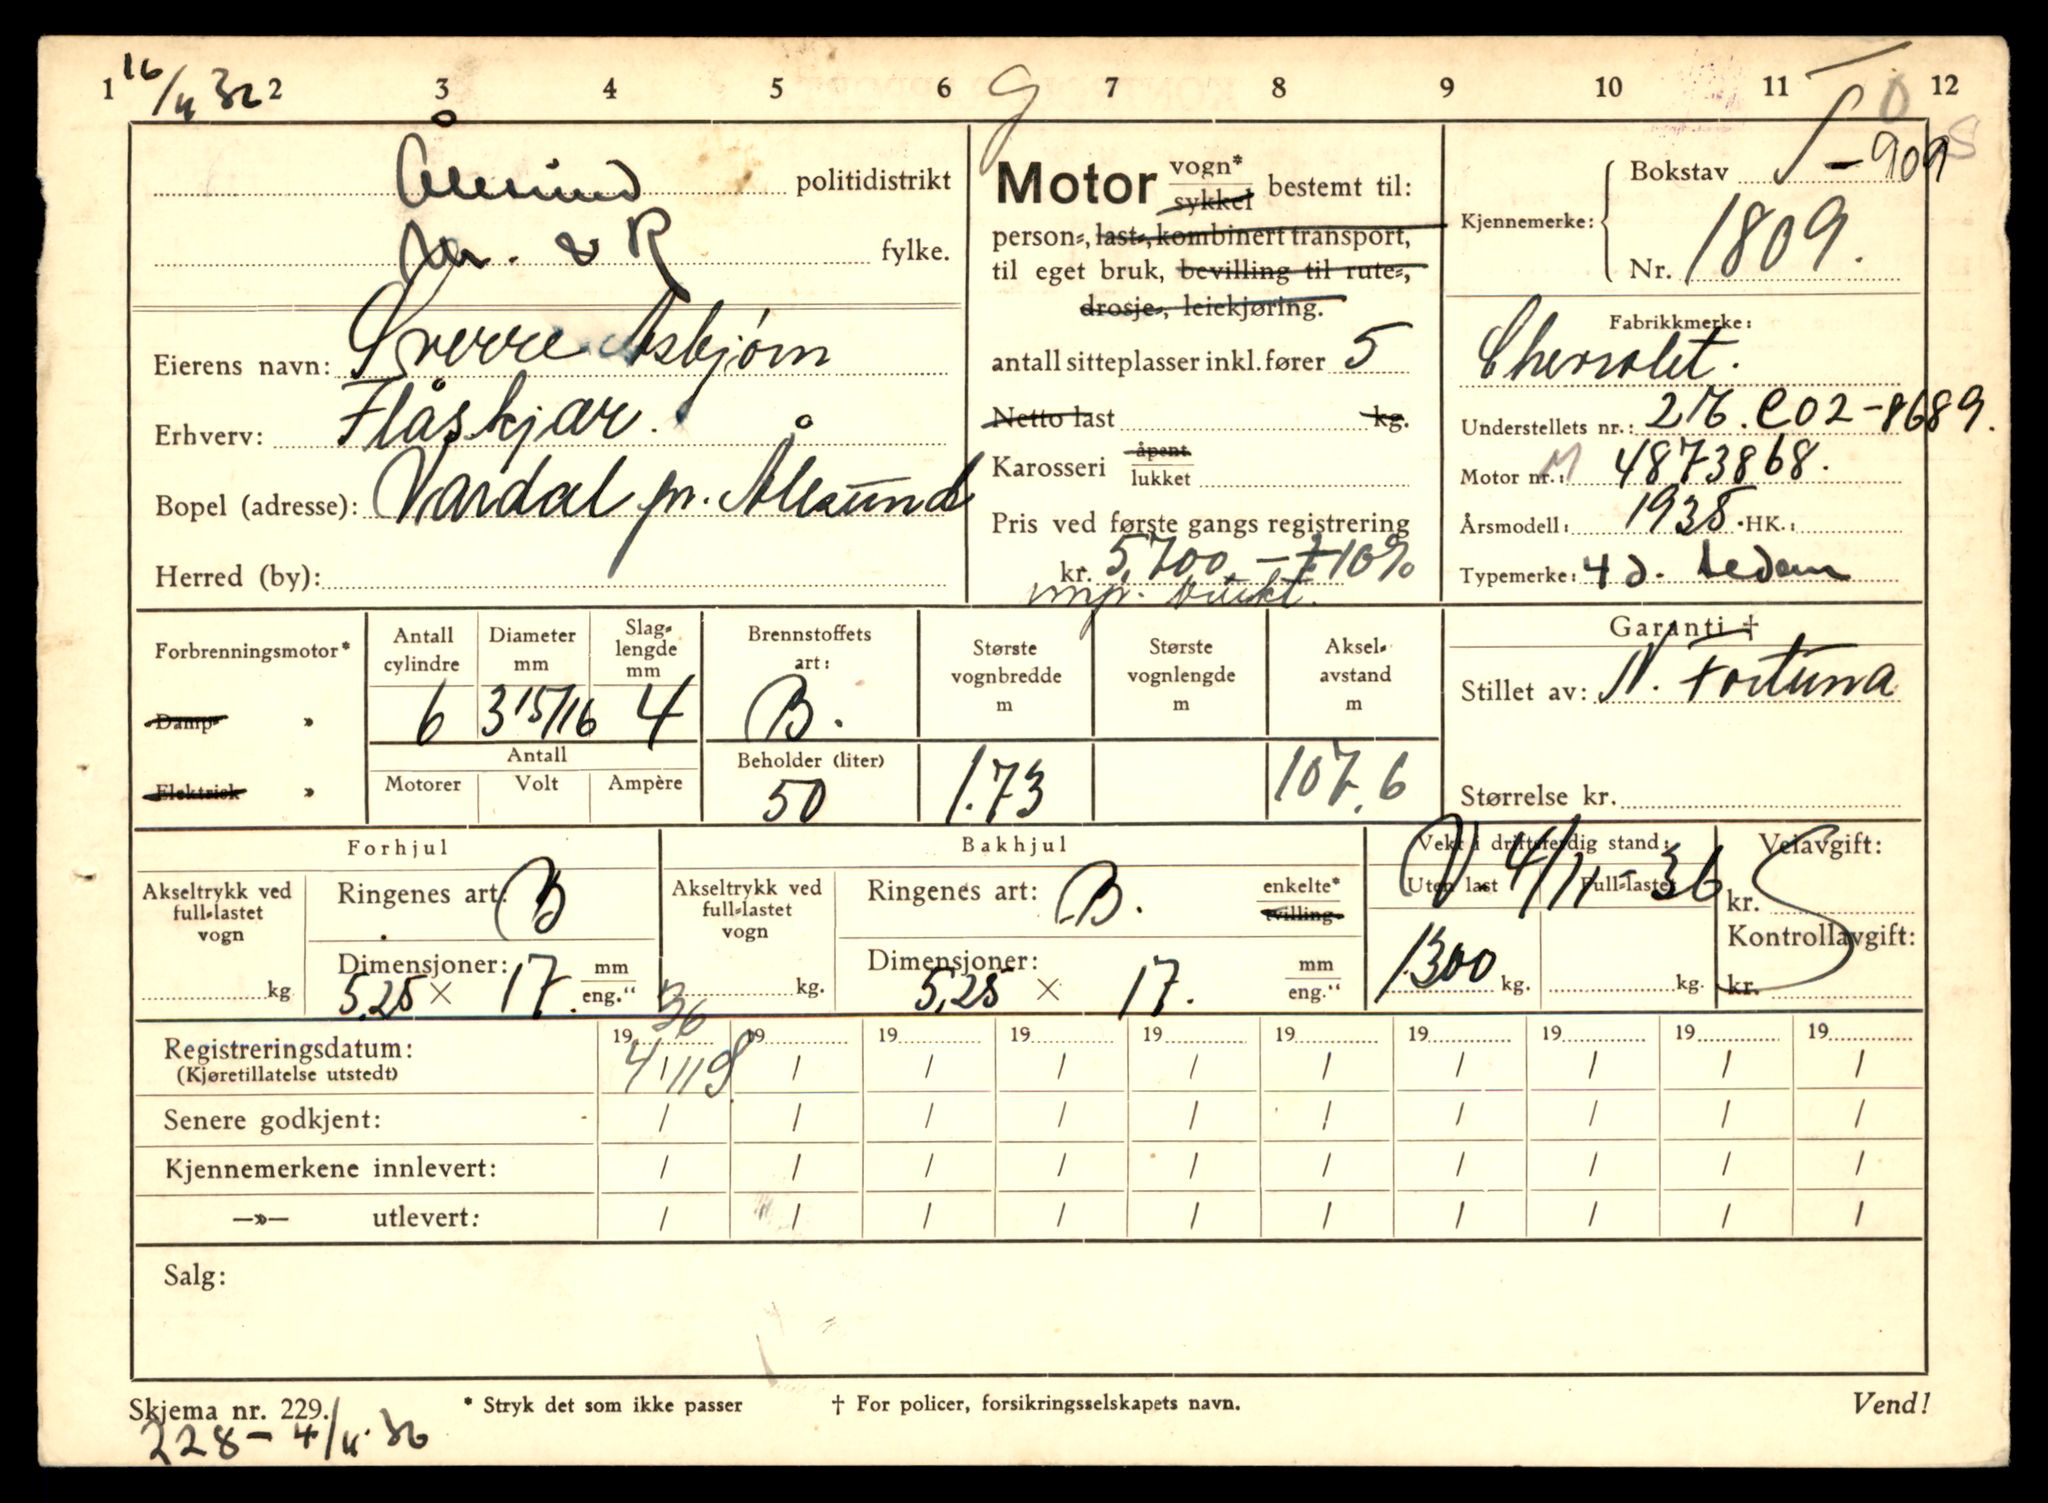 1 2 3 4 5 6 7 8 9 10 11 12
16/11 36
Ålesund politidistrikt
M. & R fylke.
Eierens navn: Sverre Asbjørn
Erhverv: Flåskjær.
Bopel (adresse): Vardal pr. Ålesund
Herred (by):
Motor vogn* sykkel bestemt til:
person-, last-, kombinert transport,
til eget bruk, bevilling til rute-,
drosje-, leiekjøring.
antall sitteplasser inkl. fører 5
Netto last kg.
Karosseri åpent lukket
Pris ved første gangs registrering
kr. 5,700.- + 10%
imp.
Kjennemerke: Bokstav - 909
Nr. 1809.
Fabrikkmerke:
Chevrolet.
Understellets nr.: 276.C02-8689.
Motor nr.: M 4873868.
Årsmodell: 1935. HK.:
Typemerke: 4 d. sedan
Forbrenningsmotor*
Damp- »
Elektrisk »
Antall cylindre Diameter mm Slag-lengde mm
6 3 15/16 4
Antall
Motorer Volt Ampère
Brennstoffets art:
B.
Beholder (liter)
50
Største vognbredde m
1.73
Største vognlengde m
Aksel-avstand m
107.6
Garanti †
Stillet av: N. Fortuna
Størrelse kr.
Forhjul
Akseltrykk ved full-lastet vogn
kg
Ringenes art: B
Dimensjoner: mm eng."
5.25 × 17.
Bakhjul
Akseltrykk ved full-lastet vogn
kg.
Ringenes art: B. enkelte* tvilling-
Dimensjoner: mm eng."
5,25 × 17.
Vekt i driftsferdig stand:
V. 4/11-36
Uten last Full-lastet
1300 kg. kg.
Veiavgift:
kr.
Kontrollavgift:
kr.
Registreringsdatum: 19 36 19 19 19 19 19 19 19 19 19
(Kjøretillatelse utstedt) 4/11 / / / / / / / / /
Senere godkjent: / / / / / / / / / /
Kjennemerkene innlevert: / / / / / / / / / /
—»— utlevert: / / / / / / / / / /
Salg:
Skjema nr. 229. * Stryk det som ikke passer † For policer, forsikringsselskapets navn. Vend!
228 - 4/11.36